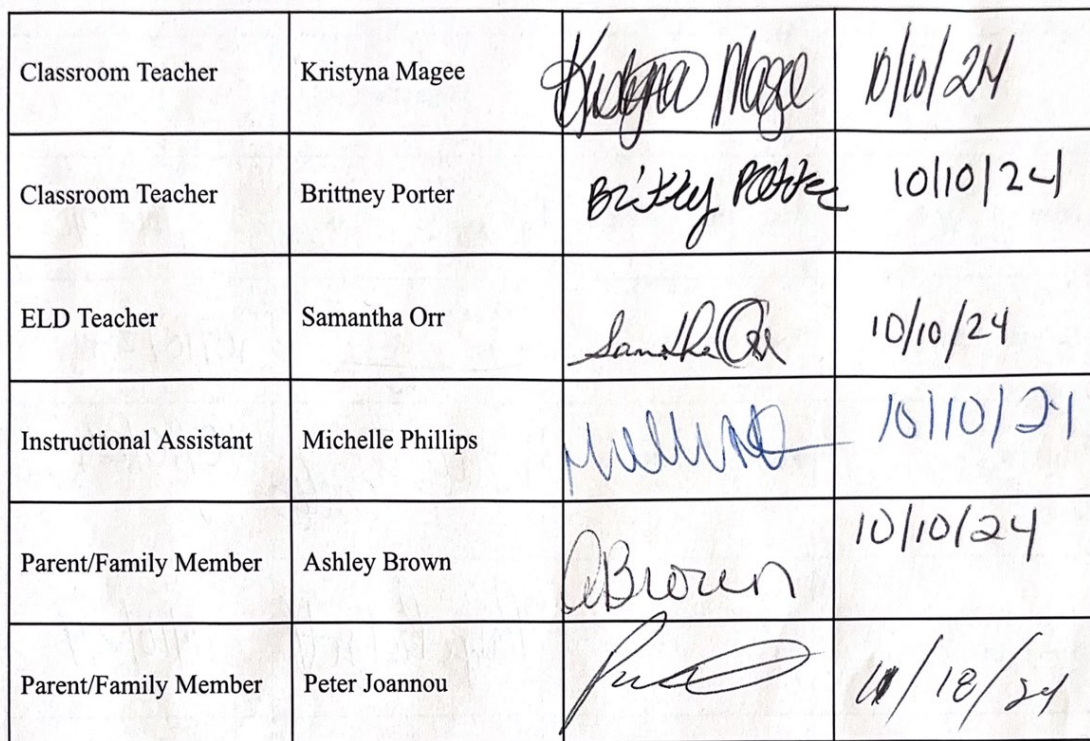 Classroom Teacher Kristyna Magee Kristyna Magee 10/10/24
Classroom Teacher Brittney Porter 10/10/24
ELD Teacher Samantha Orr Samantha Orr 10/10/24
Instructional Assistant Michelle Phillips 10/10/24
Parent/Family Member Ashley Brown ABrown 10/10/24
Parent/Family Member Peter Joannou /18/24